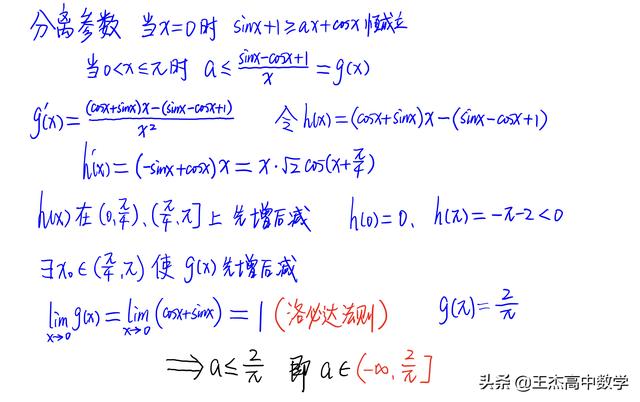 分离参数 当x=0时 sinx+1≥ax+cosx 恒成立
当0<x≤π时 a≤(sinx-cosx+1)/x=g(x)
g'(x)=((cosx+sinx)x-(sinx-cosx+1))/x² 令h(x)=(cosx+sinx)x-(sinx-cosx+1)
h'(x)=(-sinx+cosx)x=x·√2cos(x+π/4)
h(x)在(0,π/4)、(π/4,π]上先增后减 h(0)=0、h(π)=-π-2<0
∃x₀∈(π/4,π)使g(x)先增后减
lim x→0 g(x)=lim x→0 (cosx+sinx)=1(洛必达法则) g(π)=2/π
⟹a≤2/π 即a∈(-∞,2/π]
头条@王杰高中数学